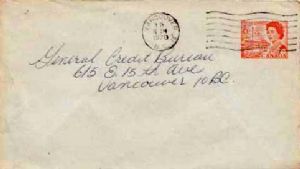 VANCOUVER
General Credit Bureau
615 E. 15 th Ave
Vancouver 10 BC.